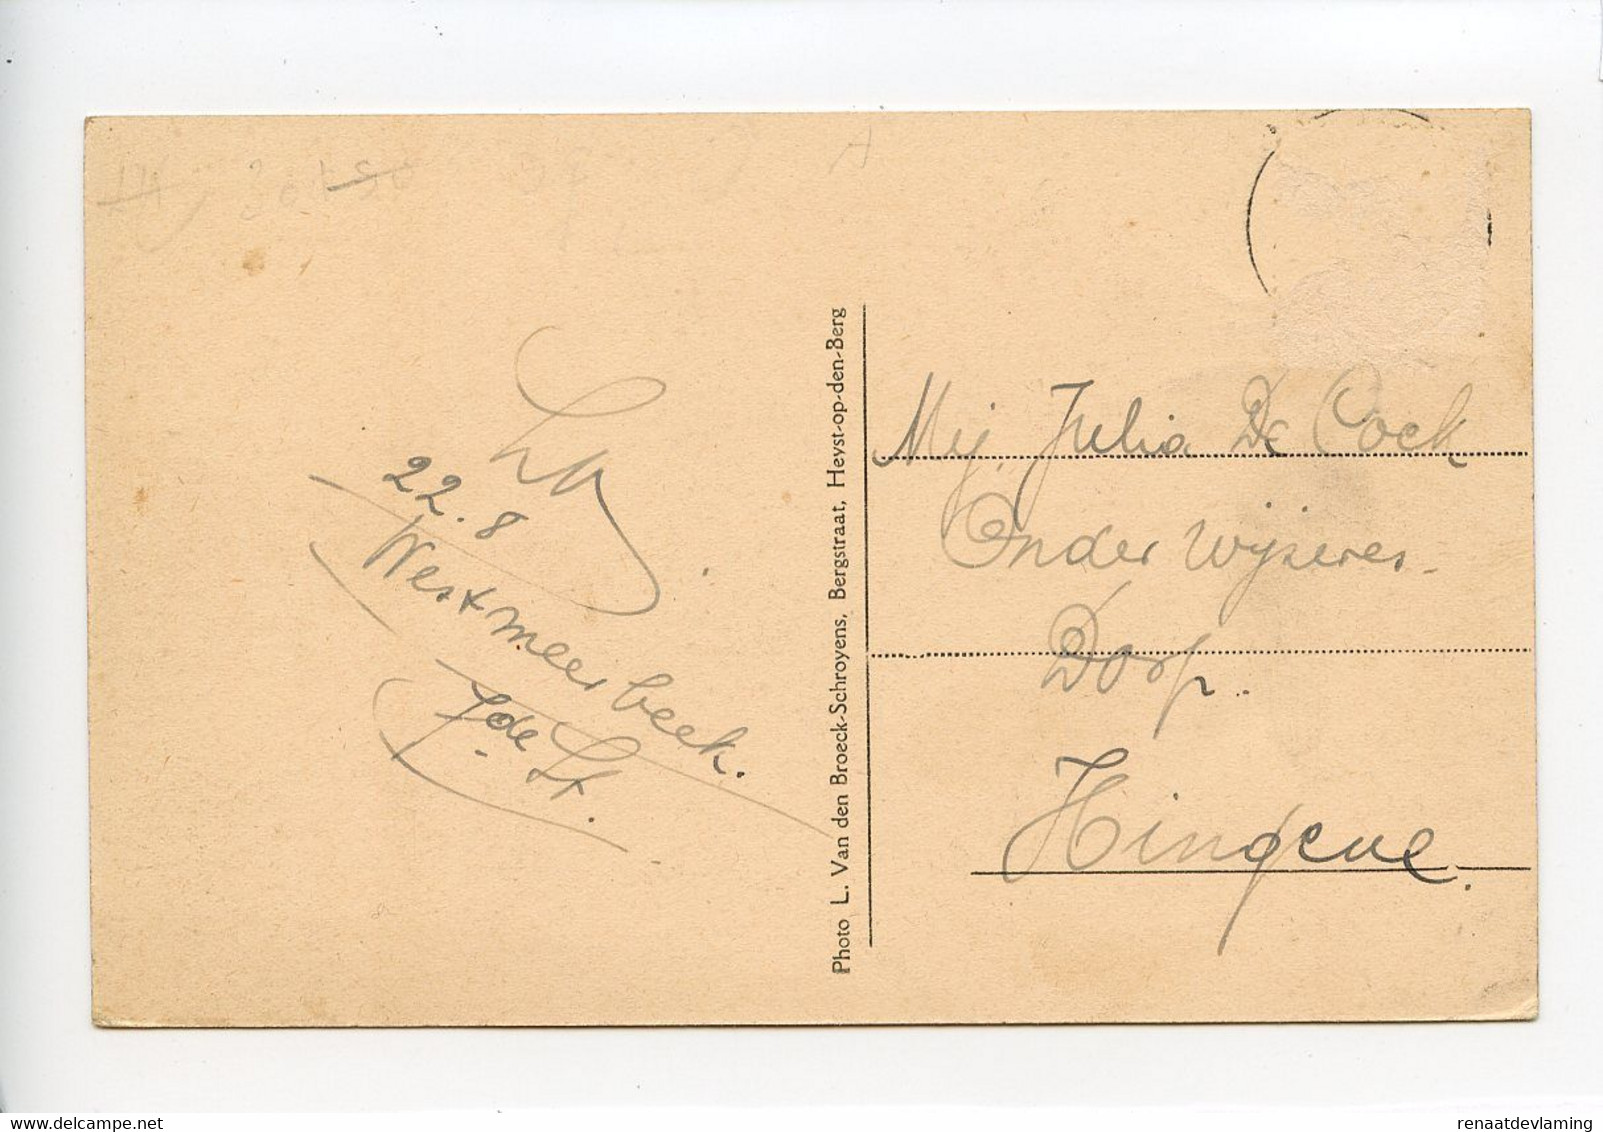 22.8
Westmeerbeek.
7de St.
Photo L. Van den Broeck-Schroyens, Bergstraat, Heyst-op-den-Berg
Mej. Julia De Cock
Onderwijseres.
Dorp.
Hingene.
renaatdevlaming